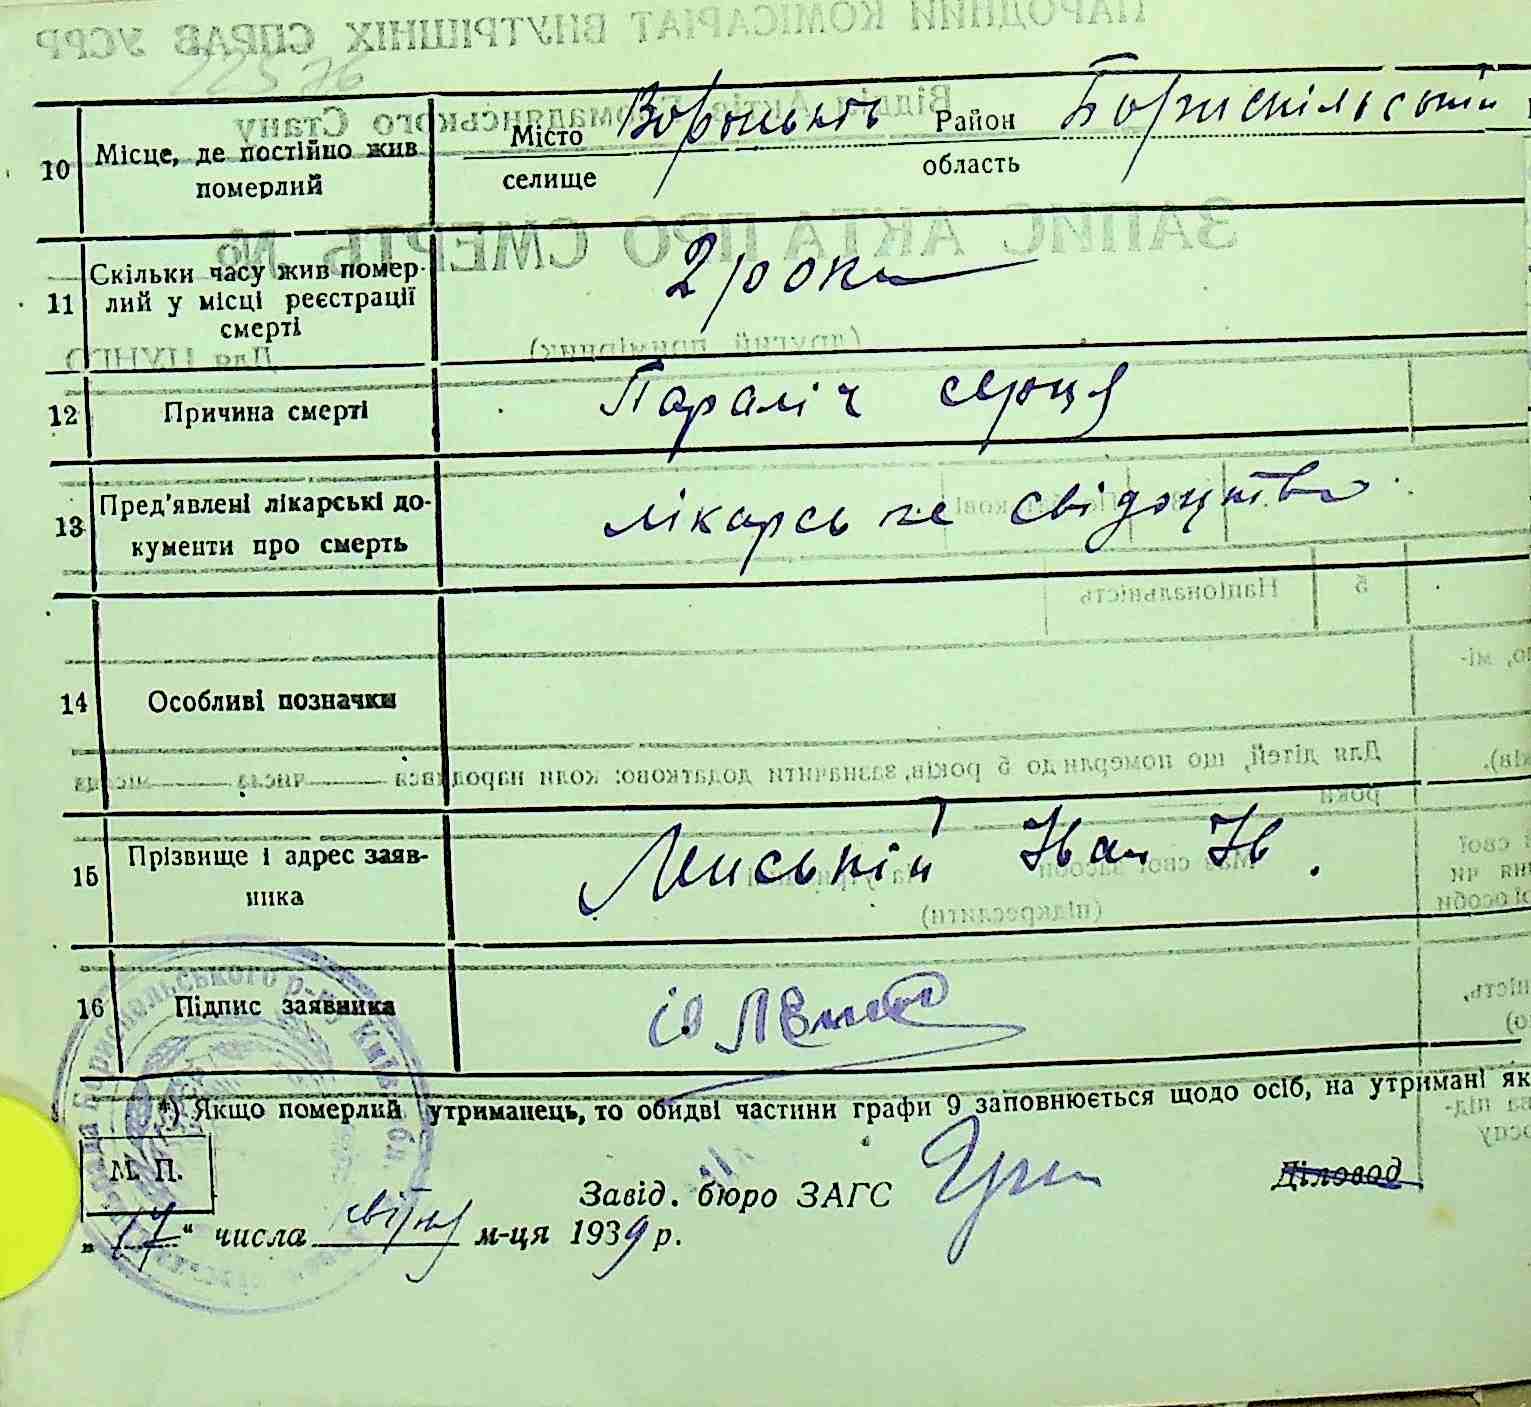 10 Місце, де постійно жив померлий
Місто Вороньків Район Бориспільський
селище область
11 Скільки часу жив помер-
лий у місці реєстрації
смерті
2 роки
12 Причина смерті
Параліч серця
13 Пред'явлені лікарські до-
кументи про смерть
лікарське свідоцтво
14 Особливі позначки
15 Прізвище і адрес заяв-
ника
Іван Ів.
16 Підпис заявника
*) Якщо померлий утриманець, то обидві частини графи 9 заповнюється щодо осіб, на утримані як
М. П.
Завід. бюро ЗАГС
Діловод
„17“ числа квітня м-ця 1939 р.